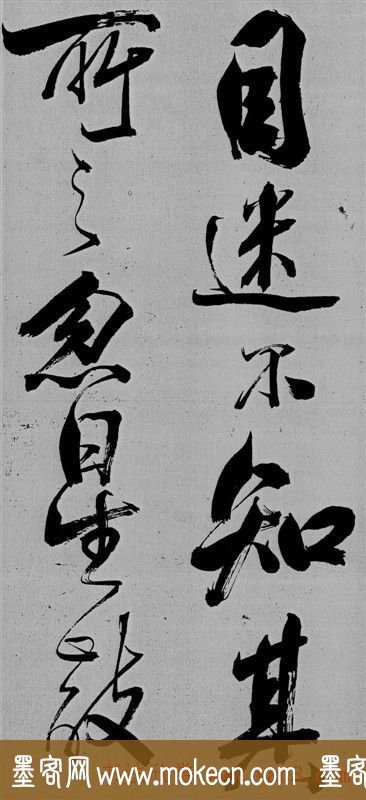 目迷不知其
所之忽星散
墨客网 www.mokecn.com 墨客网